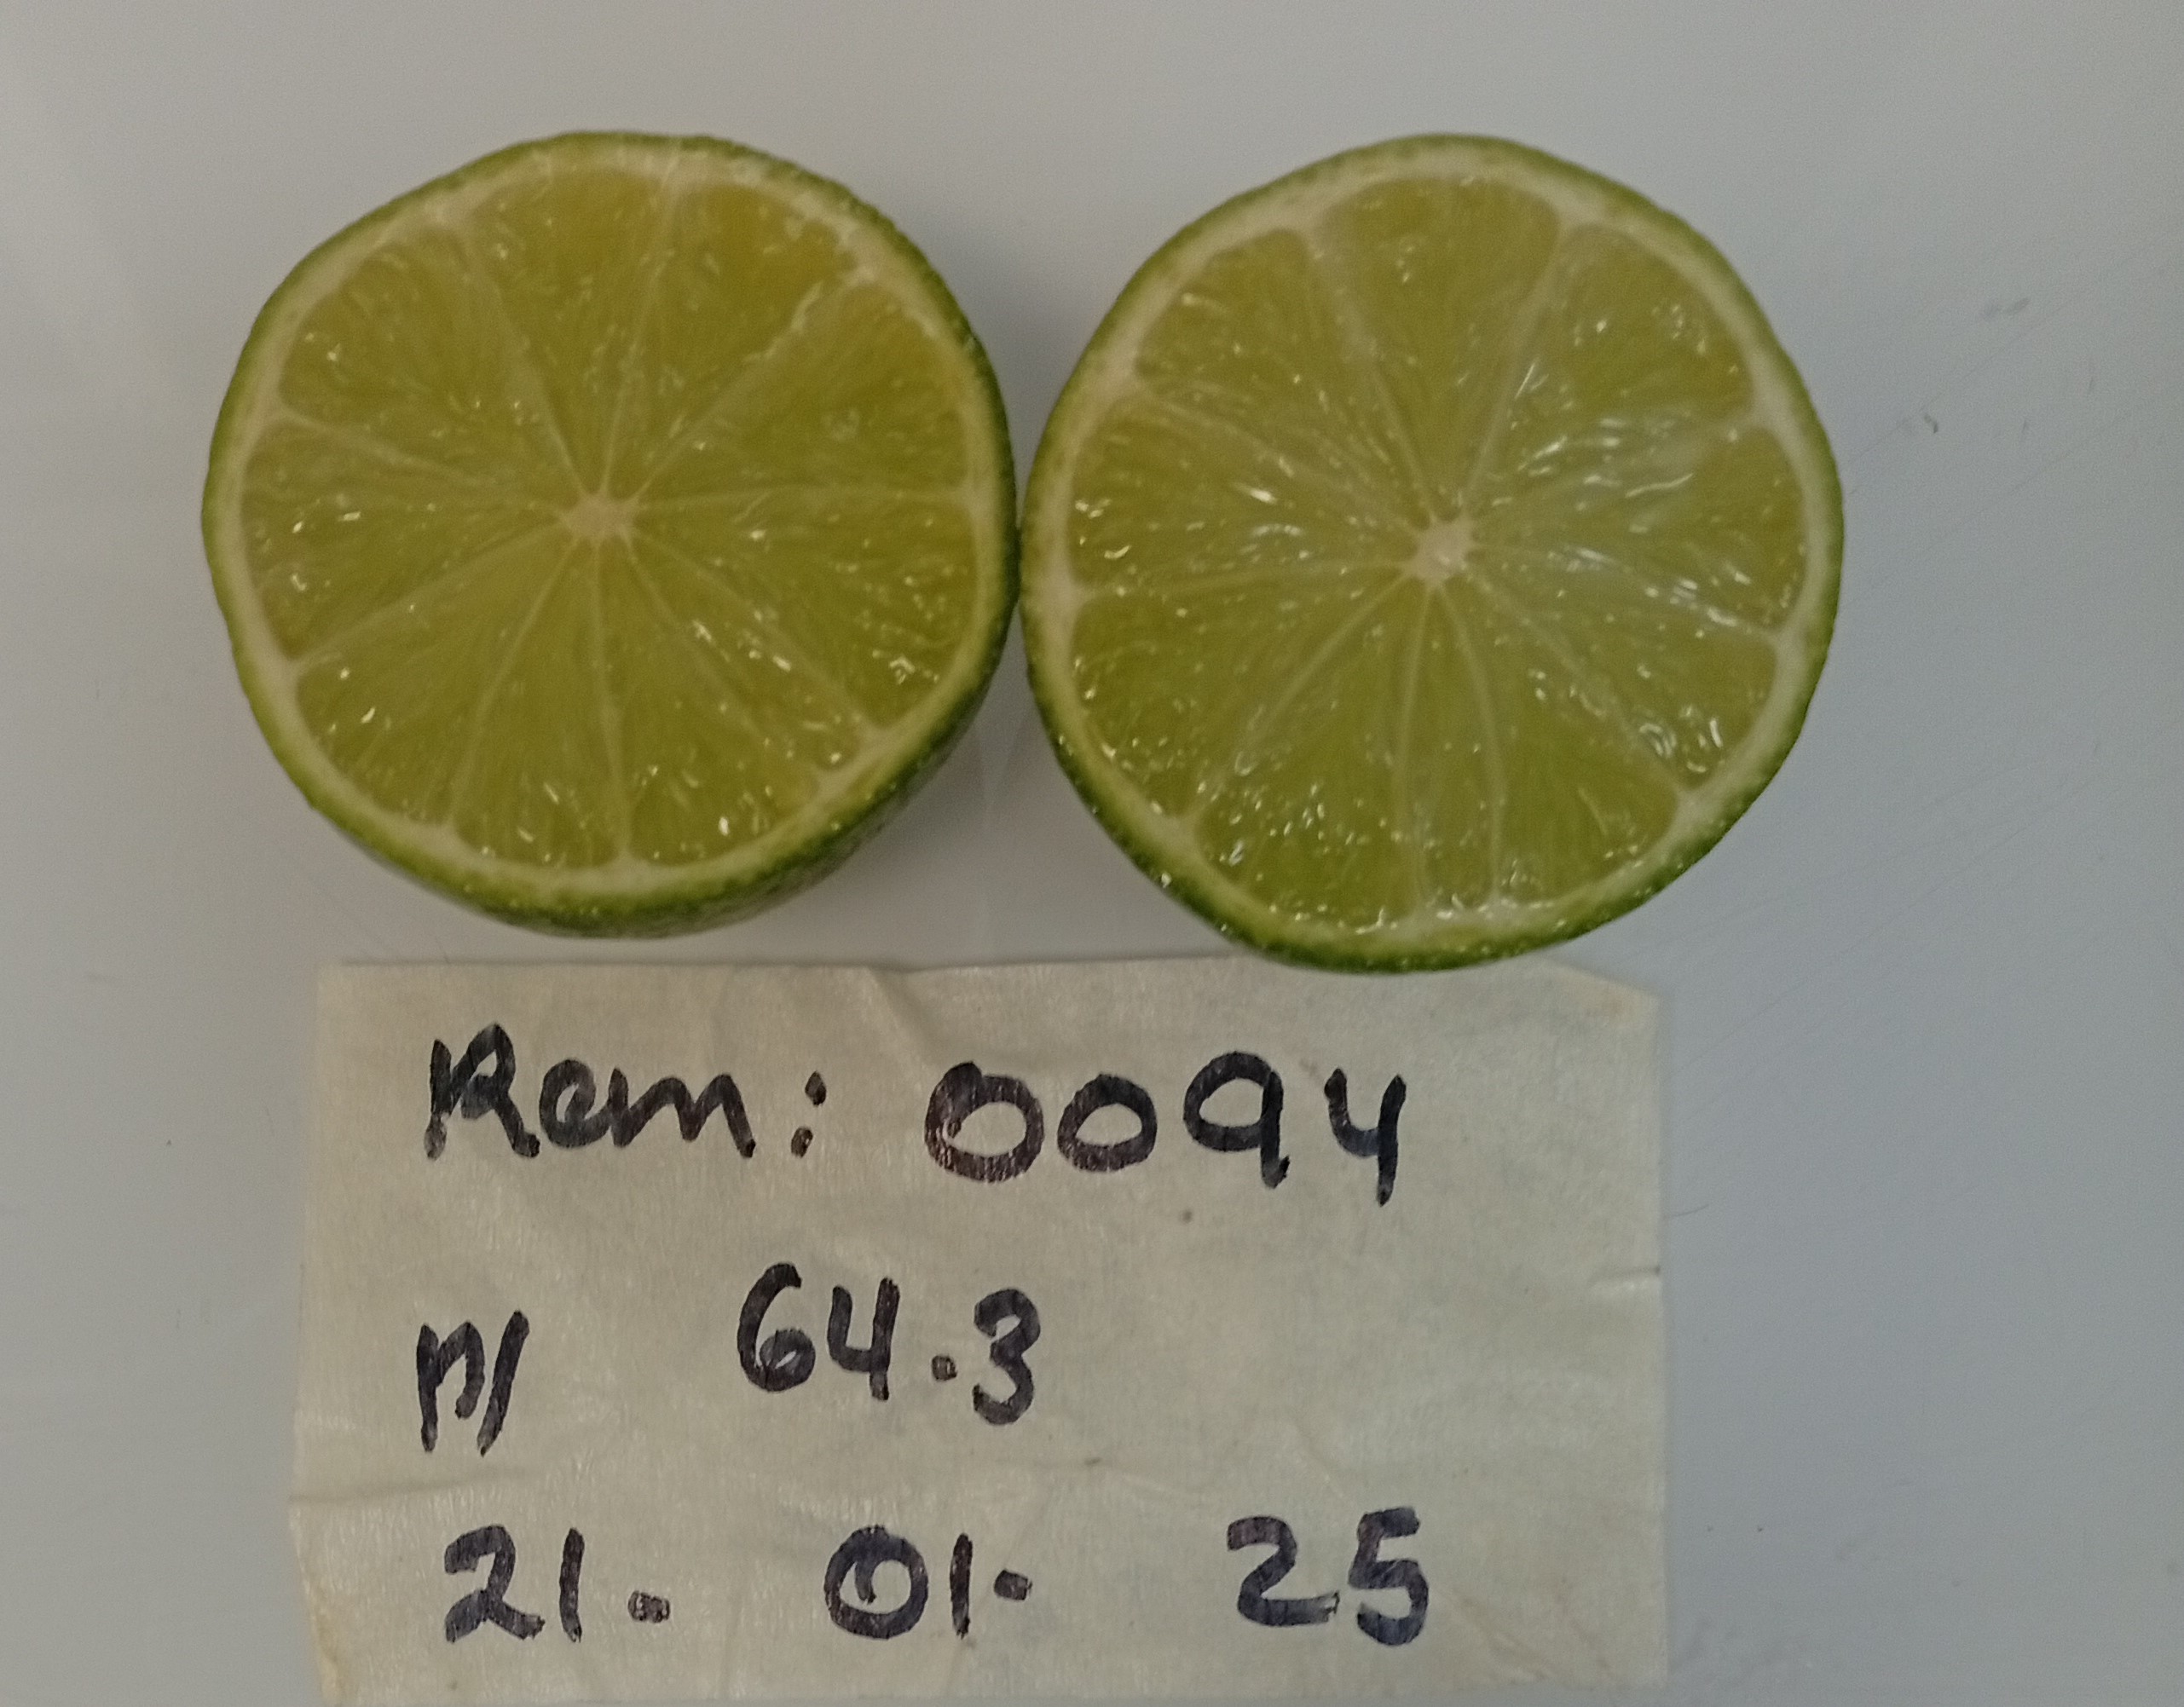 Rem: 0094
n/ 64.3
21. 01. 25